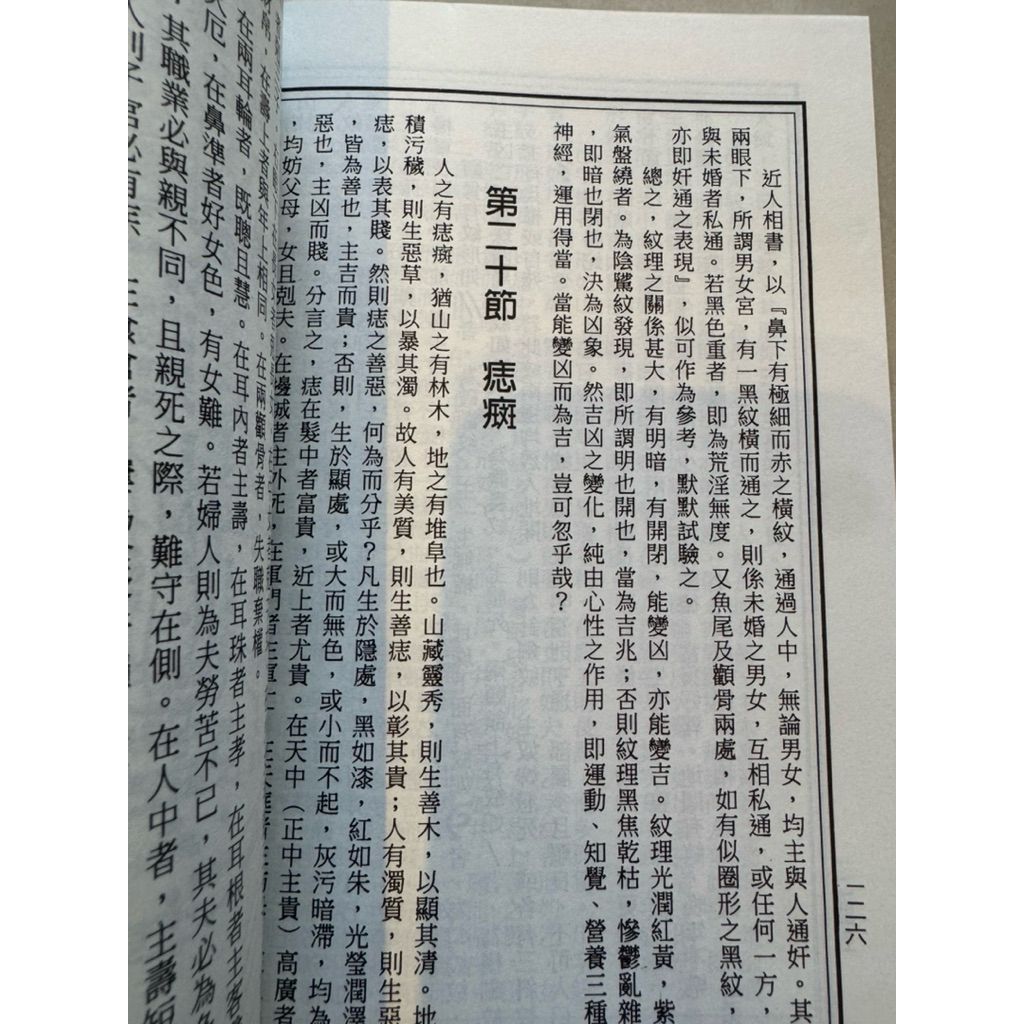 近人相書，以『鼻下有極細而赤之橫紋，通過人中，無論男女，均主與人通奸。其
兩眼下，所謂男女宮，有一黑紋橫而通之，則係未婚之男女，互相私通，或任何一方，
與未婚者私通。若黑色重者，即為荒淫無度。又魚尾及顴骨兩處，如有似圈形之黑紋，
亦即奸通之表現』，似可作為參考，默默試驗之。
總之，紋理之關係甚大，有明暗，有開閉，能變凶，亦能變吉。紋理光潤紅黃，紫
氣盤繞者。為陰騭紋發現，即所謂明也開也，當為吉兆；否則紋理黑焦乾枯，慘鬱亂雜
，即暗也閉也，決為凶象。然吉凶之變化，純由心性之作用，即運動、知覺、營養三種
神經，運用得當。當能變凶而為吉，豈可忽乎哉？
第二十節 痣癍
人之有痣癍，猶山之有林木，地之有堆阜也。山藏靈秀，則生善木，以顯其清。地
積污穢，則生惡草，以暴其濁。故人有美質，則生善痣，以彰其貴；人有濁質，則生惡
痣，以表其賤。然則痣之善惡，何為而分乎？凡生於隱處，黑如漆，紅如朱，光瑩潤澤
，皆為善也，主吉而貴；否則，生於顯處，或大而無色，或小而不起，灰污暗滯，均為
惡也，主凶而賤。分言之，痣在髮中者富貴，近上者尤貴。在天中（正中主貴）高廣者
，均妨父母，女且剋夫。在邊城者主外死，在軍門者主軍亡
在壽上者與年上相同。在兩顴骨者，失職棄權。
在兩耳輪者，既聰且慧。在耳內者主壽，在耳珠者主孝，在耳根者主客
厄，在鼻準者好女色，有女難。若婦人則為夫勞苦不已，其夫必為
其職業必與親不同，且親死之際，難守在側。在人中者，主壽
一二六